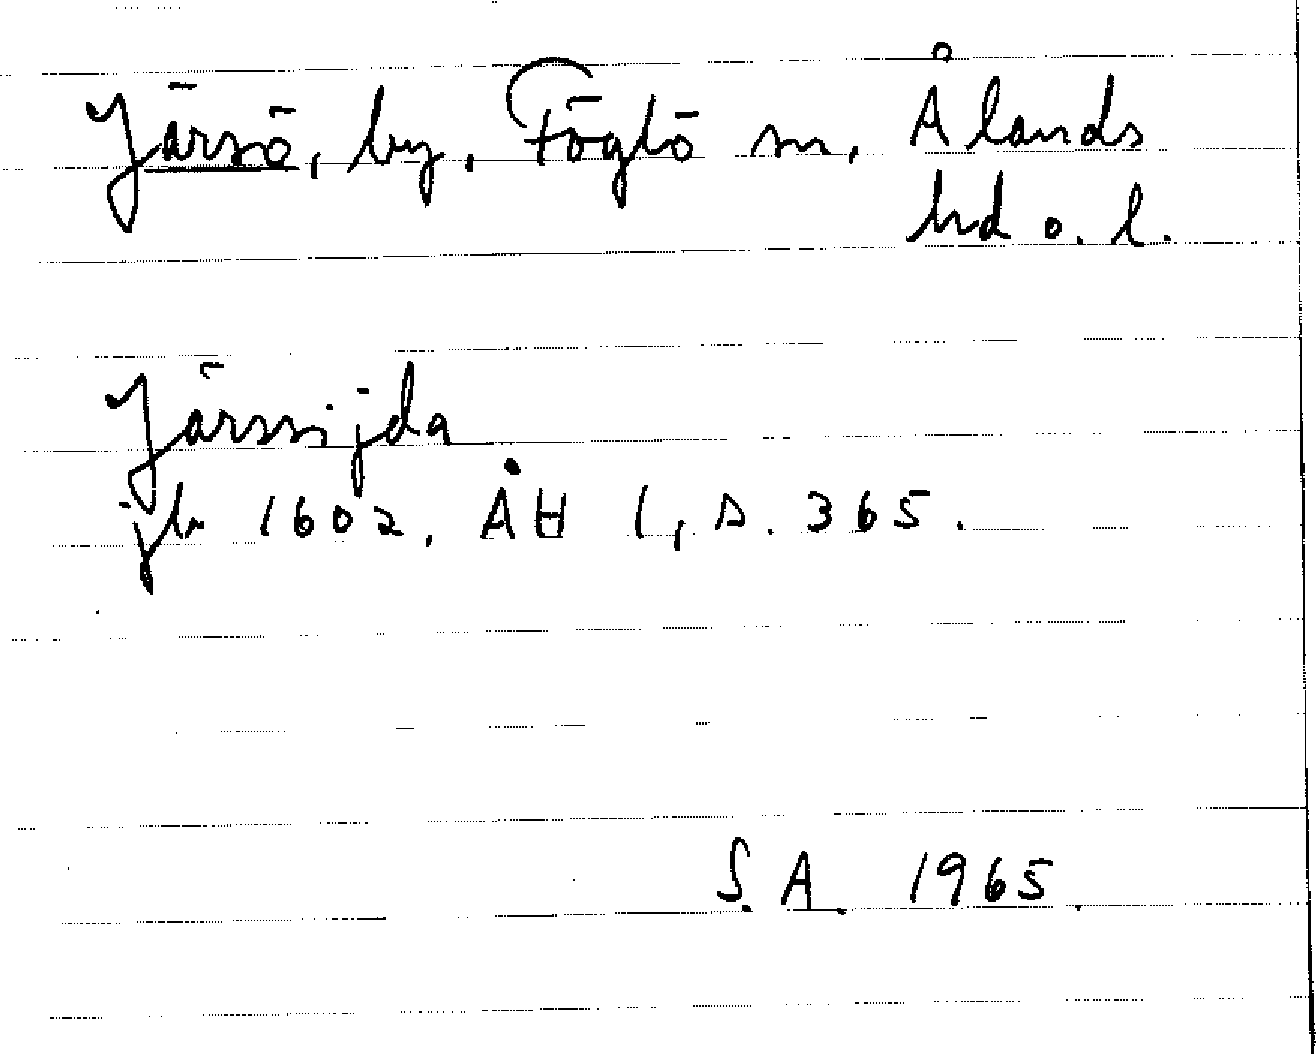 Järsö, by, Föglö sn, Ålands
hd o. l.
Järssijda
jb 1602, ÅH 1, s. 365.
S. A. 1965.